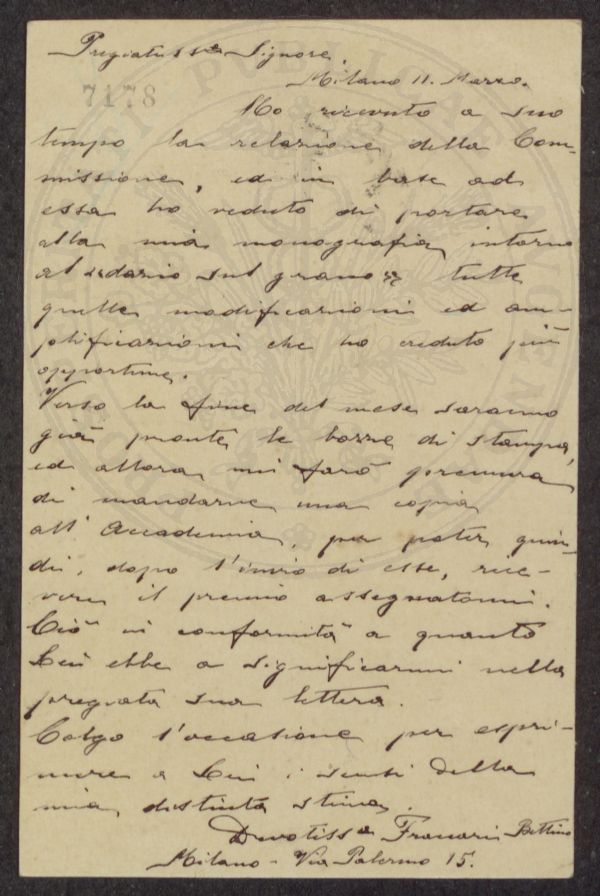 Pregiatiss° Signore,
Milano 11. Marzo.
7178
Ho ricevuto a suo
tempo la relazione della Com-
missione, ed in base ad
essa ho veduto di portare
alla mia monografia intorno
al dazio sul grano tutte
quelle modificazioni ed am-
plificazioni che ho creduto più
opportune.
Verso la fine del mese saranno
già pronte le bozze di stampa,
ed allora mi farò premura
di mandarne una copia
all'Accademia, per poter quin-
di, dopo l'invio di esse, rice-
vere il premio assegnatomi.
Ciò in conformità a quanto
Lei ebbe a significarmi nella
pregiata sua lettera.
Colgo l'occasione per espri-
mere a Lei i sensi della
mia distinta stima.
Devotiss° Bettino
Milano - Via Palermo 15.